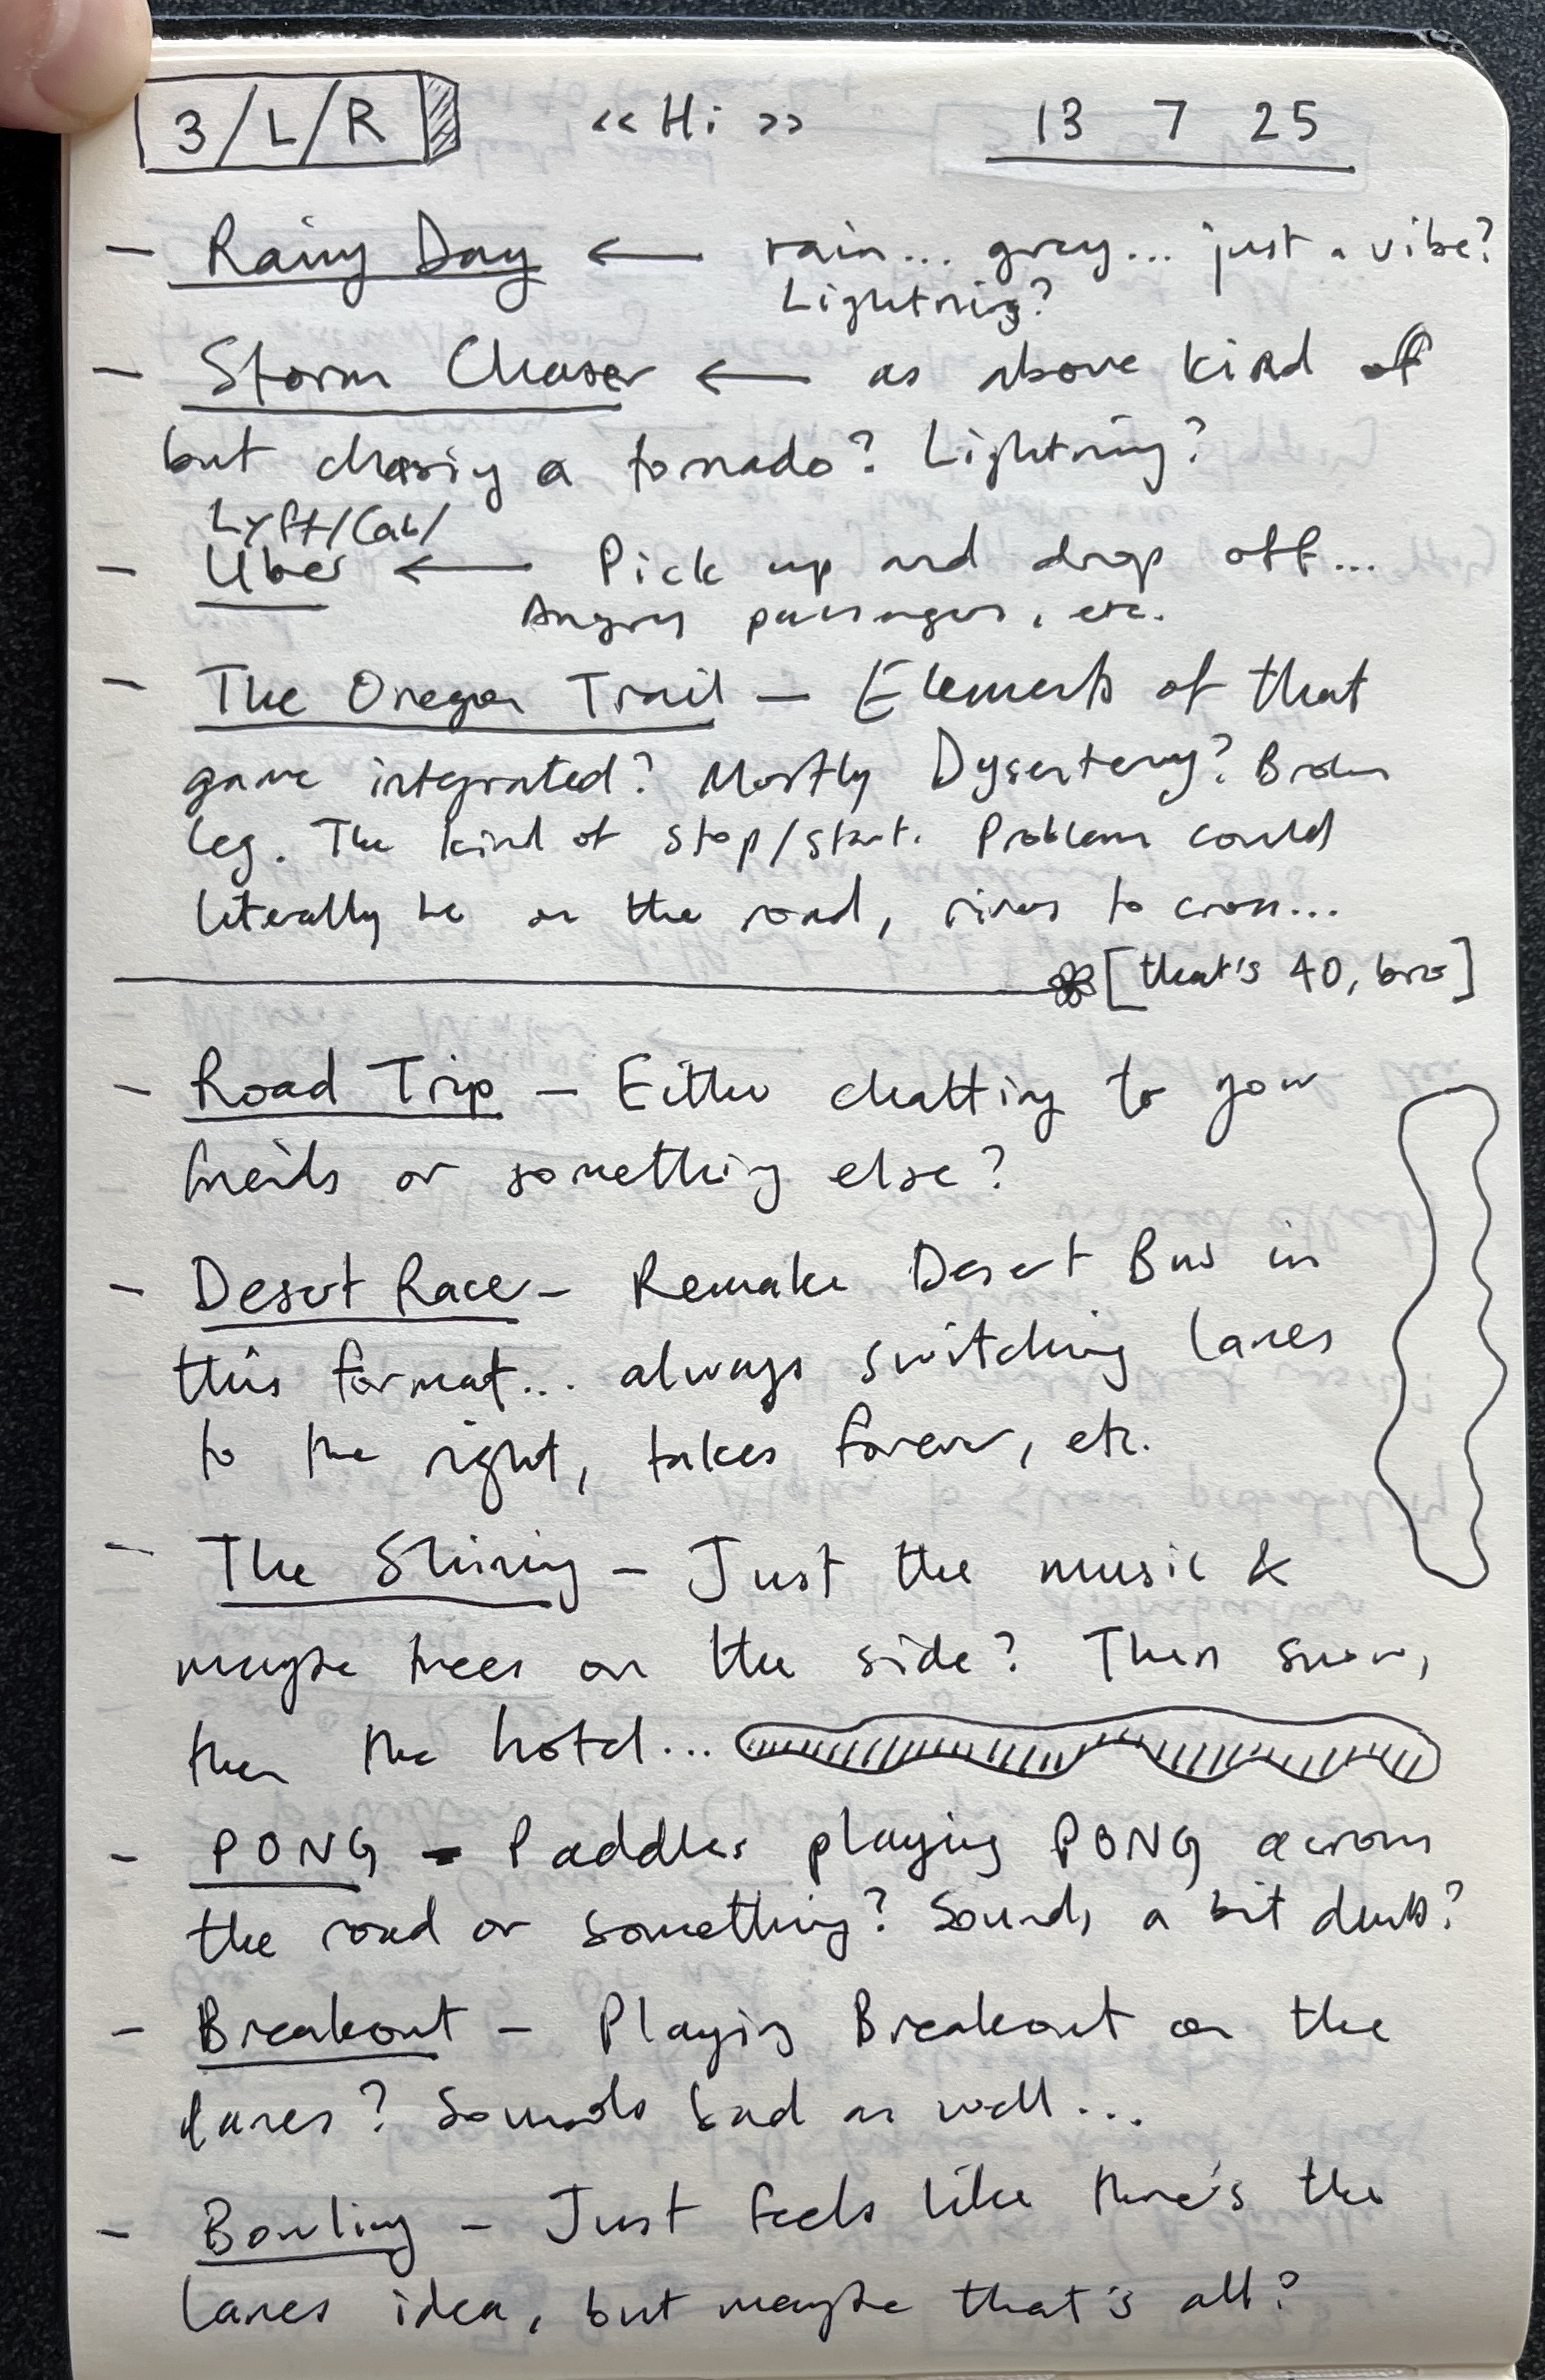 3/L/R << Hi >> 13 7 25
- Rainy Day ← rain... grey... just a vibe?
Lightning?
- Storm Chaser ← as above kind of
but chasing a tornado? Lightning?
Lyft/Cab/
- Uber ← Pick up and drop off...
Angry passengers, etc.
- The Oregon Trail - Elements of that
game integrated? Mostly Dysentery? Broken
leg. The kind of stop/start. Problems could
literally be on the road, rivers to cross...
[that's 40, bro]
- Road Trip - Either chatting to your
friends or something else?
- Desert Race - Remake Desert Bus in
this format... always switching lanes
to the right, takes forever, etc.
- The Shining - Just the music &
maybe trees on the side? Then snow,
then the hotel...
- PONG - Paddles playing PONG across
the road or something? Sounds a bit dumb?
- Breakout - Playing Breakout on the
lanes? Sounds bad as well...
- Bowling - Just feels like there's the
lanes idea, but maybe that's all?